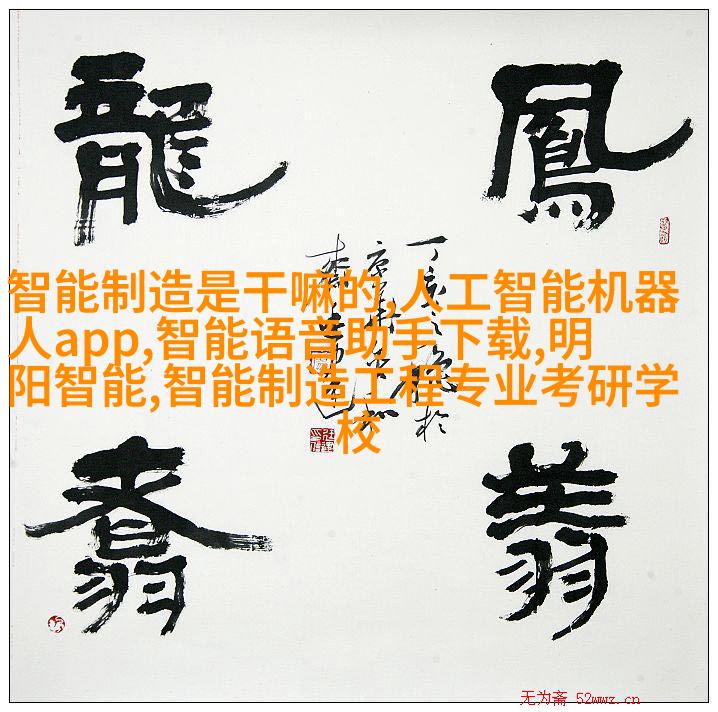 鳳
翔
龍
翥
丁亥之秋於
智能制造是干嘛的,人工智能机器
人app,智能语音助手下载,明
阳智能,智能制造工程专业考研学
校
无为斋 52wwz.cn